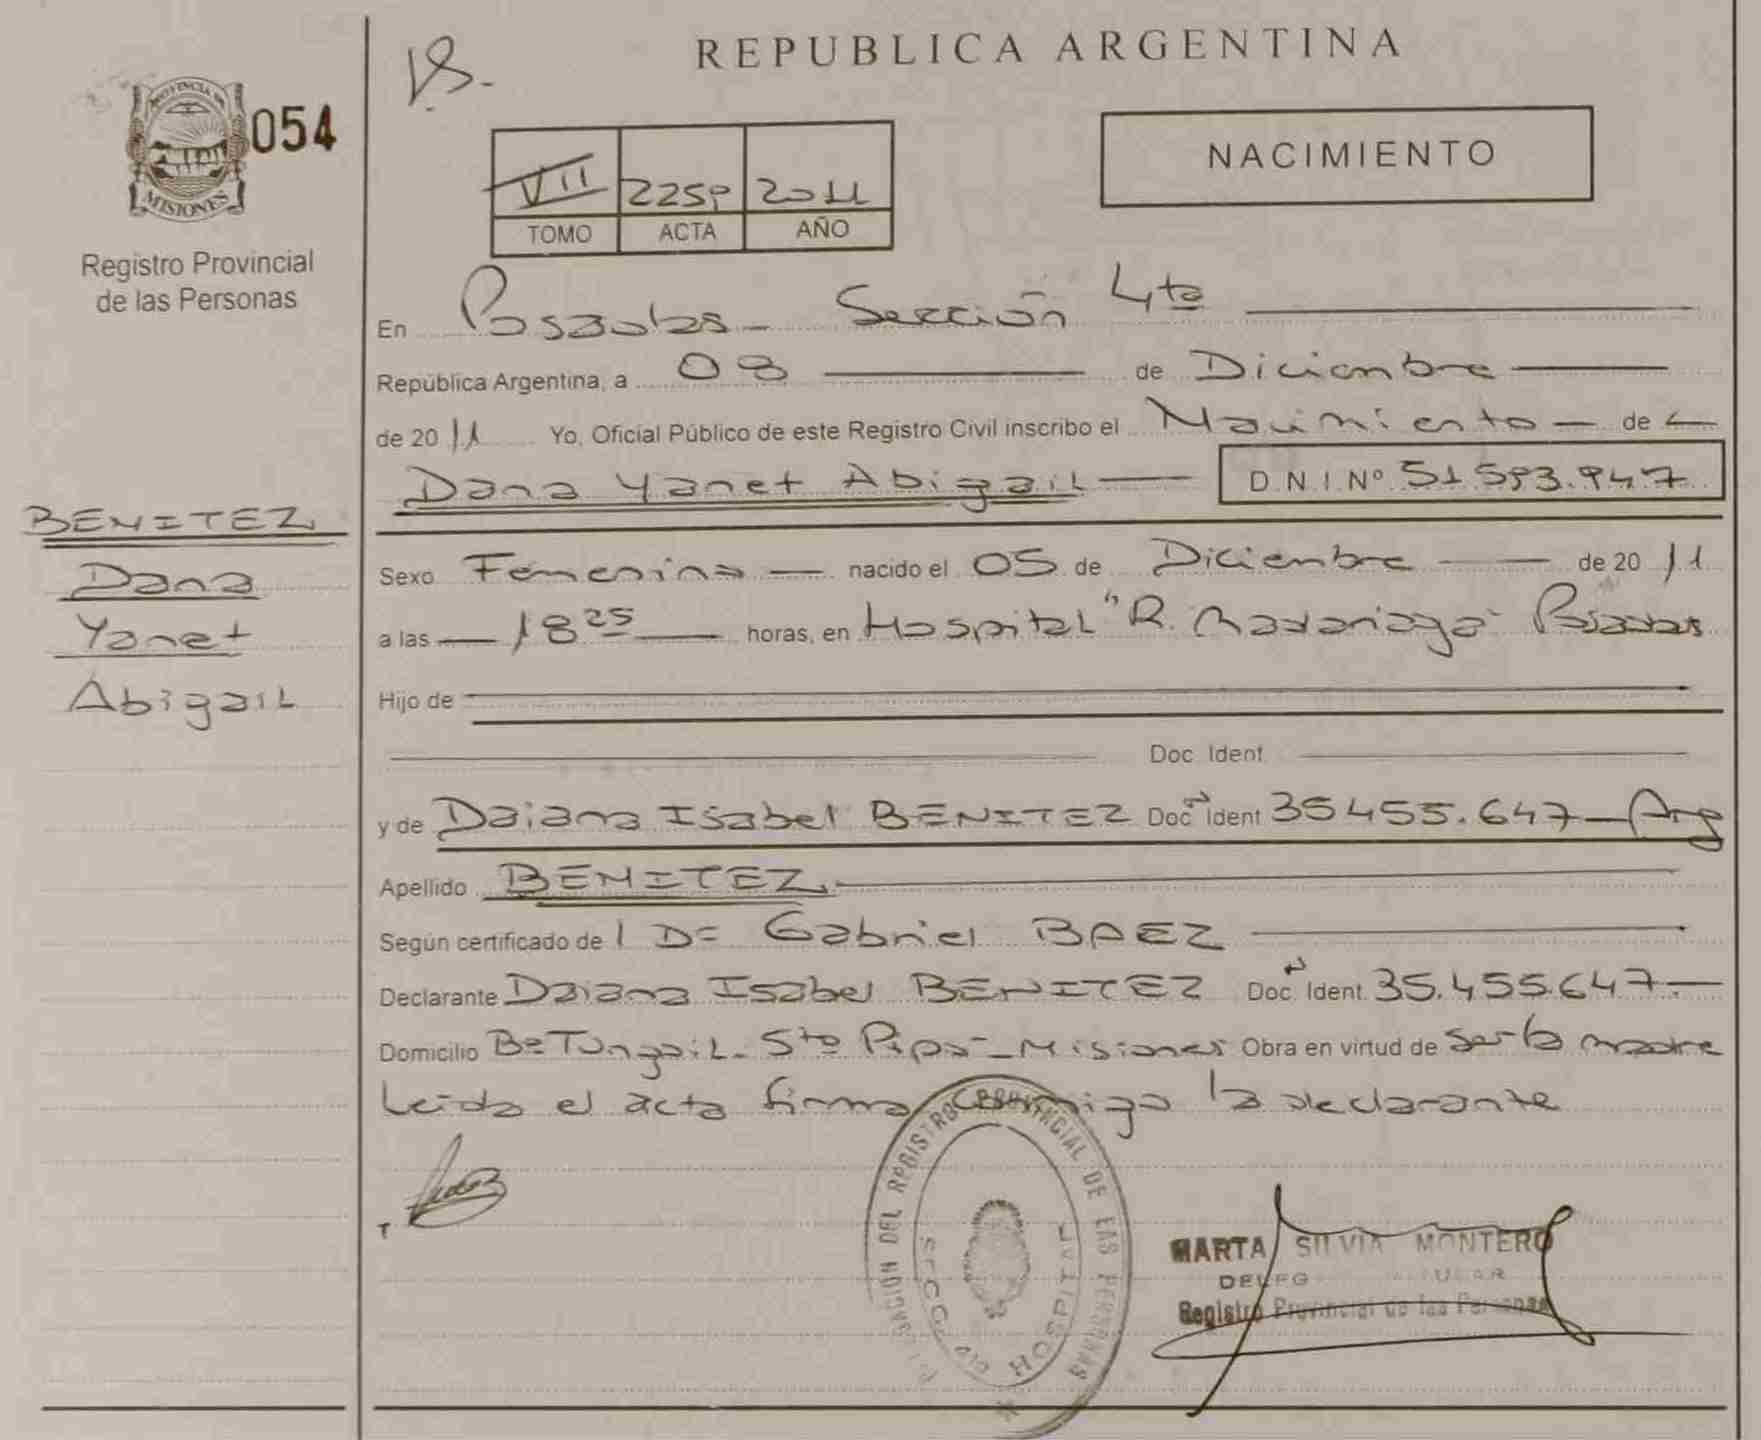 REPUBLICA ARGENTINA
PROVINCIA DE
MISIONES
054
Registro Provincial
de las Personas
VII 2259 2011
TOMO ACTA AÑO
NACIMIENTO
En Posadas - Sección 4ta
República Argentina, a 08 de Diciembre
de 2011 Yo, Oficial Público de este Registro Civil inscribo el Nacimiento - de
Dana Yanet Abigail D.N.I. Nº 51.593.947
BENITEZ
Dana
Yanet
Abigail
Sexo Femenino nacido el 05 de Diciembre de 2011
a las 18 25 horas, en Hospital "R. Madariaga" Posadas
Hijo de
Doc. Ident.
y de Daiana Isabel BENITEZ Doc. Ident. 35.455.647 - Arg
Apellido BENITEZ
Según certificado de Gabriel BAEZ
Declarante Daiana Isabel BENITEZ Doc. Ident. 35.455.647.-
Domicilio Bº Sto Pipó - Misiones Obra en virtud de ser la madre
Leída el acta firma conmigo la declarante
DELEGACIÓN DEL REGISTRO PROVINCIAL DE LAS PERSONAS
HOSPITAL
MARTA SILVIA MONTERO
Registro Provincial de las Personas